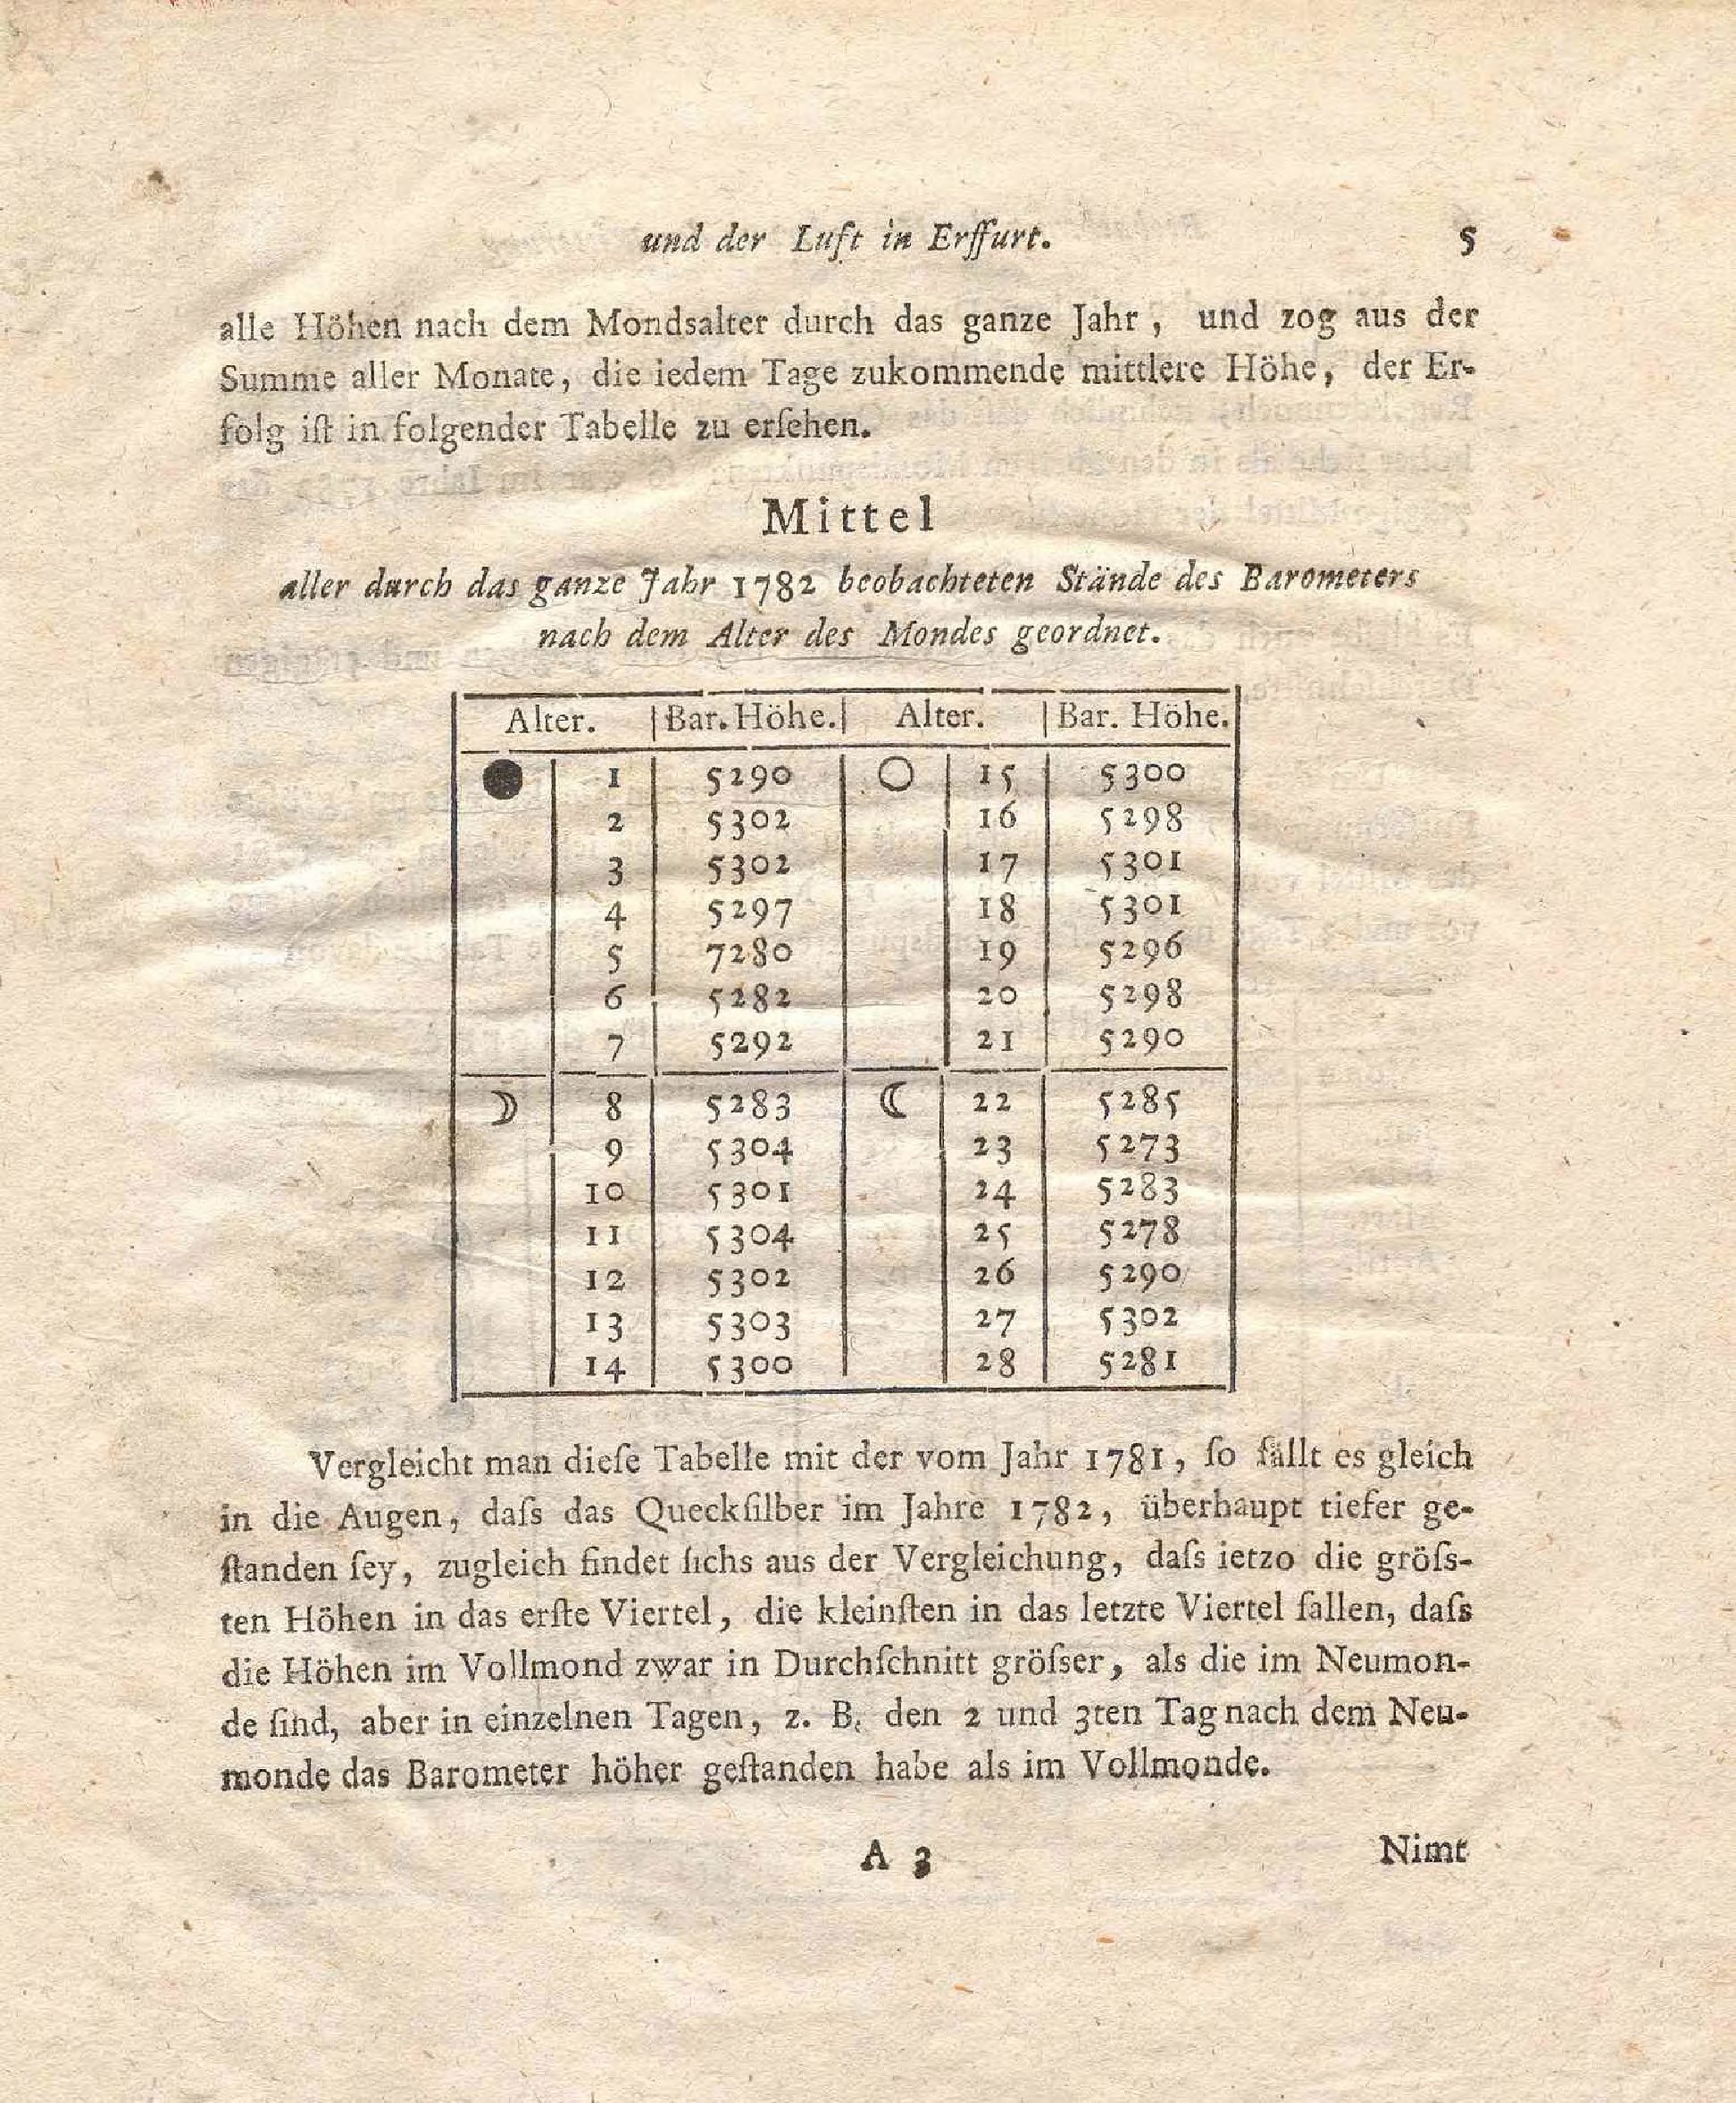 und der Luft in Erffurt. 5
alle Höhen nach dem Mondsalter durch das ganze Jahr, und zog aus der
Summe aller Monate, die iedem Tage zukommende mittlere Höhe, der Er-
folg iſt in folgender Tabelle zu erſehen.
Mittel
aller durch das ganze Jahr 1782 beobachteten Stände des Barometers
nach dem Alter des Mondes geordnet.
Alter. | Bar. Höhe. | Alter. | Bar. Höhe.
● 1 5290 ○ 15 5300
2 5302 16 5298
3 5302 17 5301
4 5297 18 5301
5 7280 19 5296
6 5282 20 5298
7 5292 21 5290
☽ 8 5283 ☾ 22 5285
9 5304 23 5273
10 5301 24 5283
11 5304 25 5278
12 5302 26 5290
13 5303 27 5302
14 5300 28 5281
Vergleicht man dieſe Tabelle mit der vom Jahr 1781, ſo fällt es gleich
in die Augen, daſs das Queckſilber im Jahre 1782, überhaupt tiefer ge-
ſtanden ſey, zugleich findet ſichs aus der Vergleichung, daſs ietzo die gröſs-
ten Höhen in das erſte Viertel, die kleinſten in das letzte Viertel fallen, daſs
die Höhen im Vollmond zwar in Durchſchnitt gröſser, als die im Neumon-
de ſind, aber in einzelnen Tagen, z. B. den 2 und 3ten Tag nach dem Neu-
monde das Barometer höher geſtanden habe als im Vollmonde.
A 3 Nimt